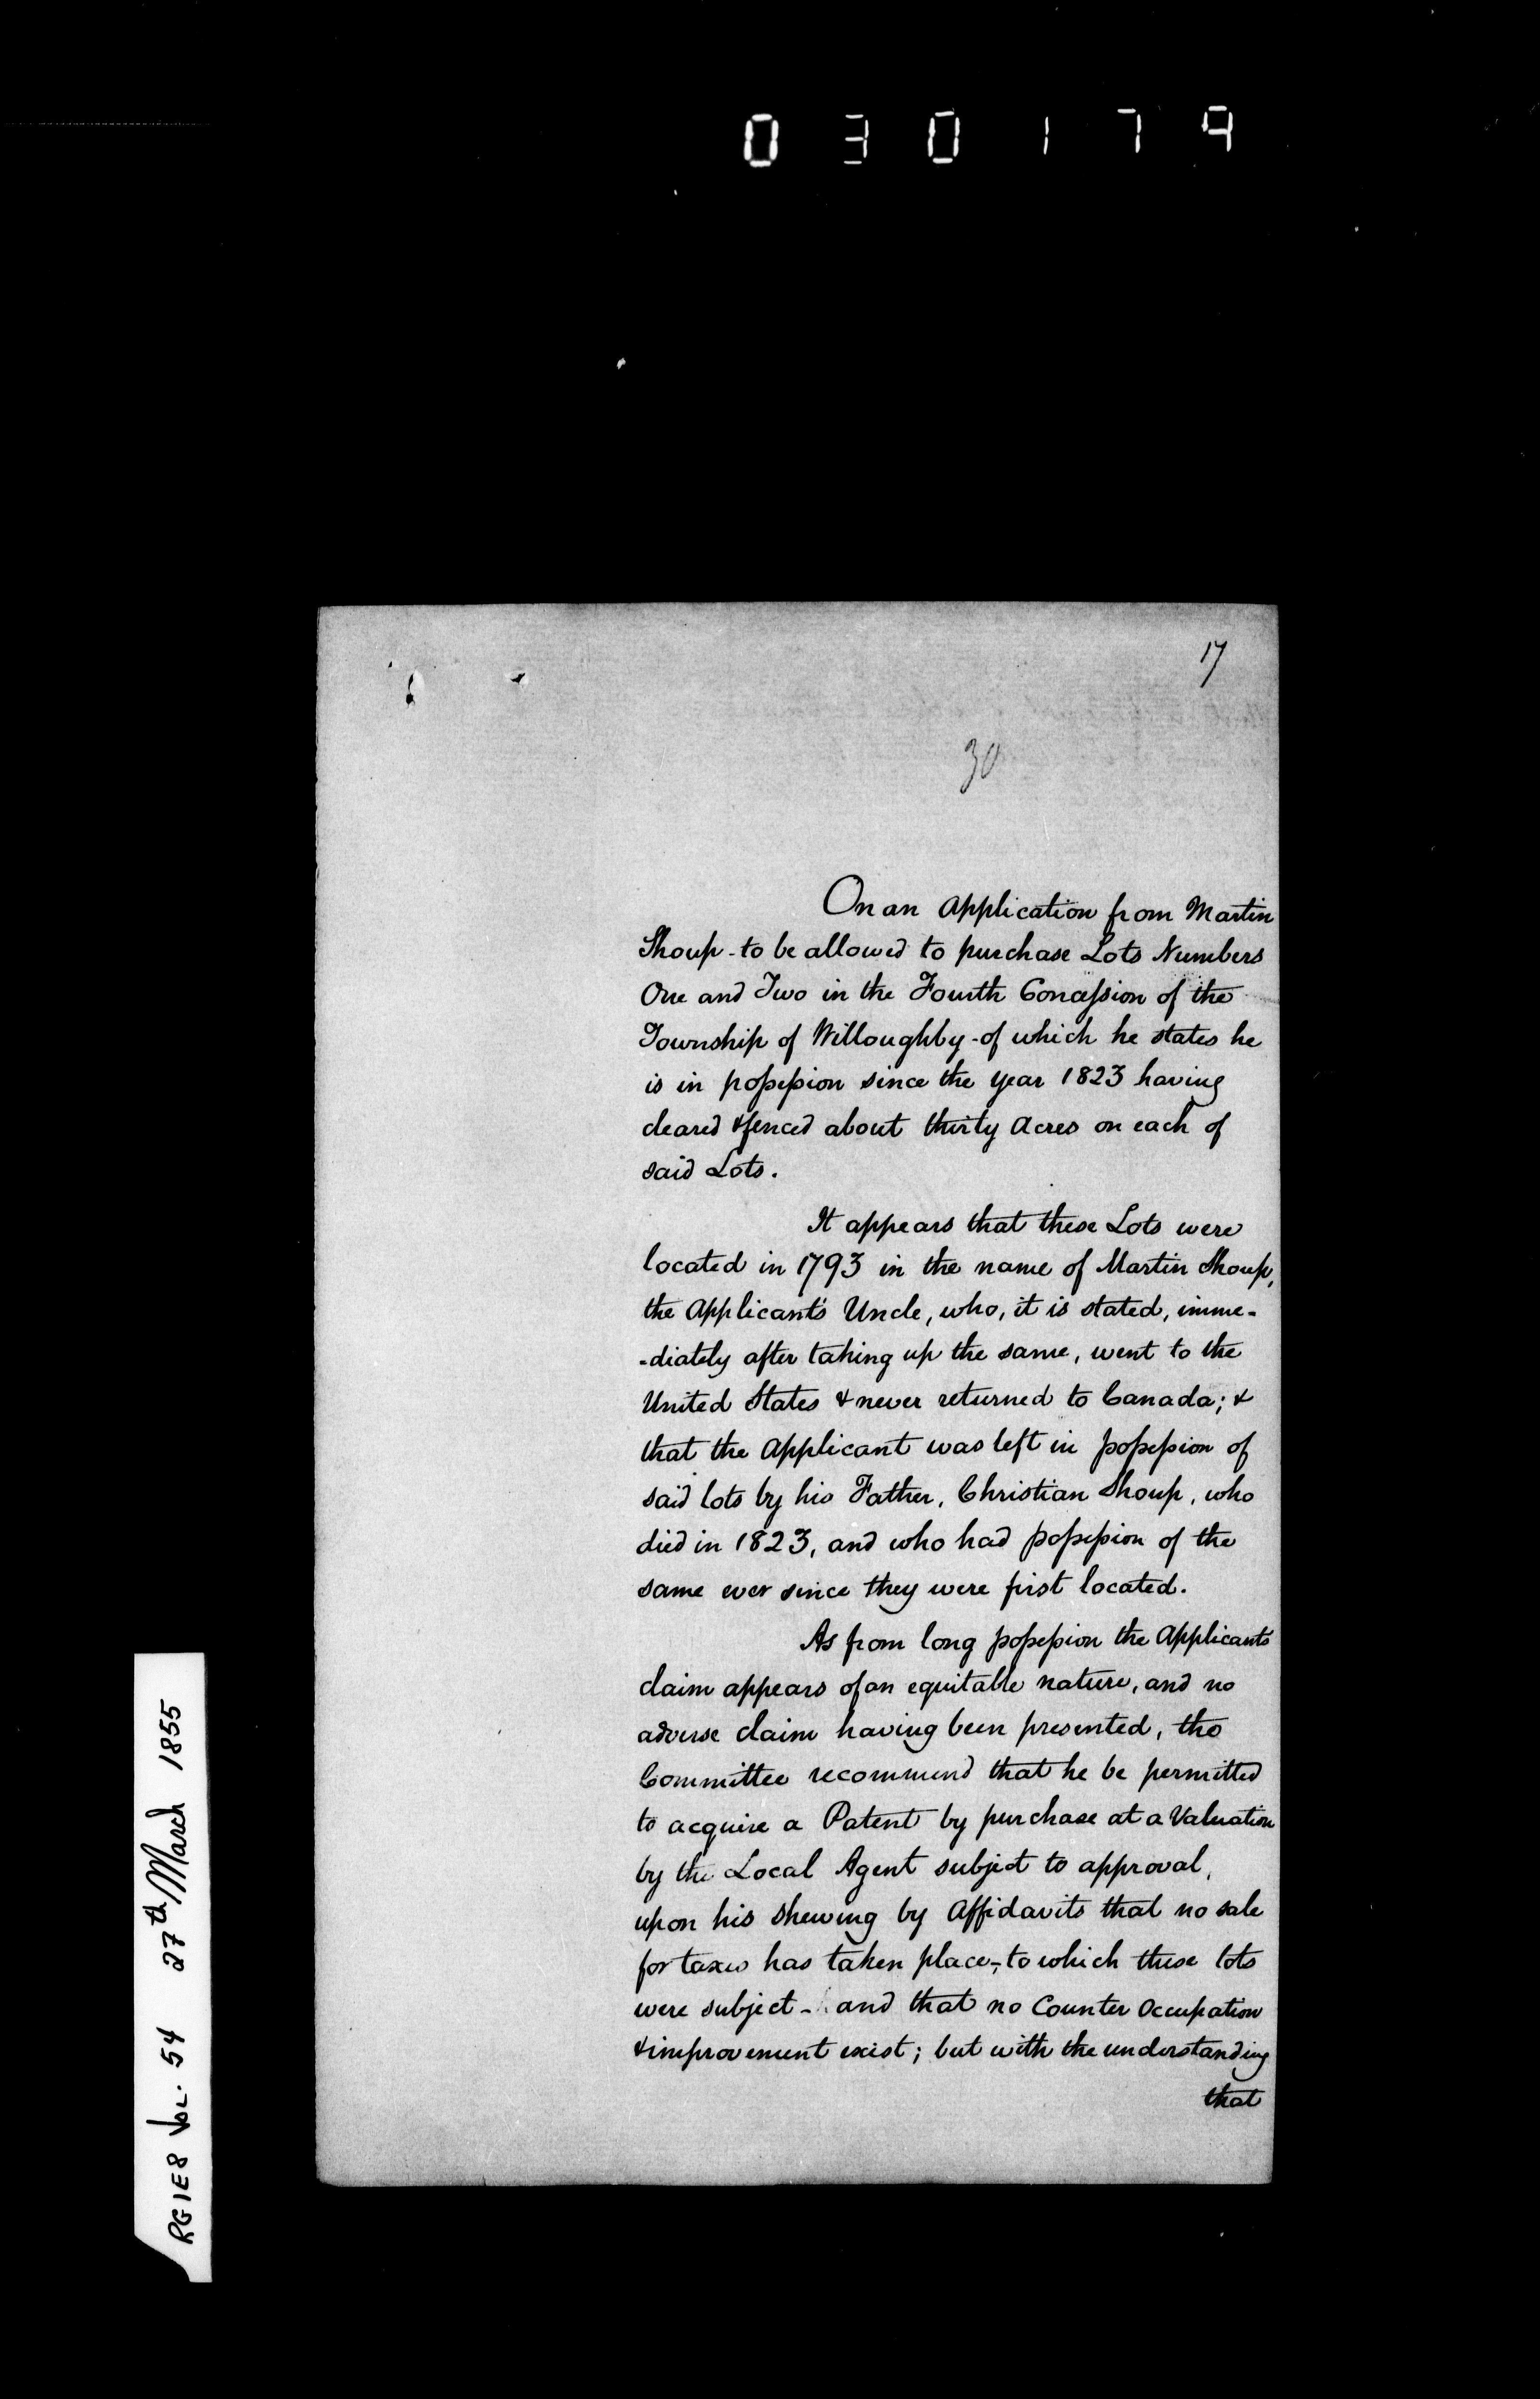 030179
17
30
On an Application from Martin
Shoup - to be allowed to purchase Lots Numbers
One and Two in the Fourth Concession of the
Township of Willoughby - of which he states he
is in possession since the year 1823 having
cleared & fenced about thirty Acres on each of
said Lots.
It appears that these Lots were
located in 1793 in the name of Martin Shoup,
the Applicant's Uncle, who, it is stated, imme-
-diately after taking up the same, went to the
United States & never returned to Canada; &
that the Applicant was left in possession of
said lots by his Father, Christian Shoup, who
died in 1823, and who had possession of the
same ever since they were first located.
As from long possession the Applicants
claim appears of an equitable nature, and no
adverse claim having been presented, the
Committee recommend that he be permitted
to acquire a Patent by purchase at a Valuation
by the Local Agent subject to approval,
upon his shewing by Affidavits that no sale
for taxes has taken place, - to which these lots
were subject - and that no Counter Occupation
& improvement exist; but with the understanding
that
RG1E8 Vol. 54 27th March 1855